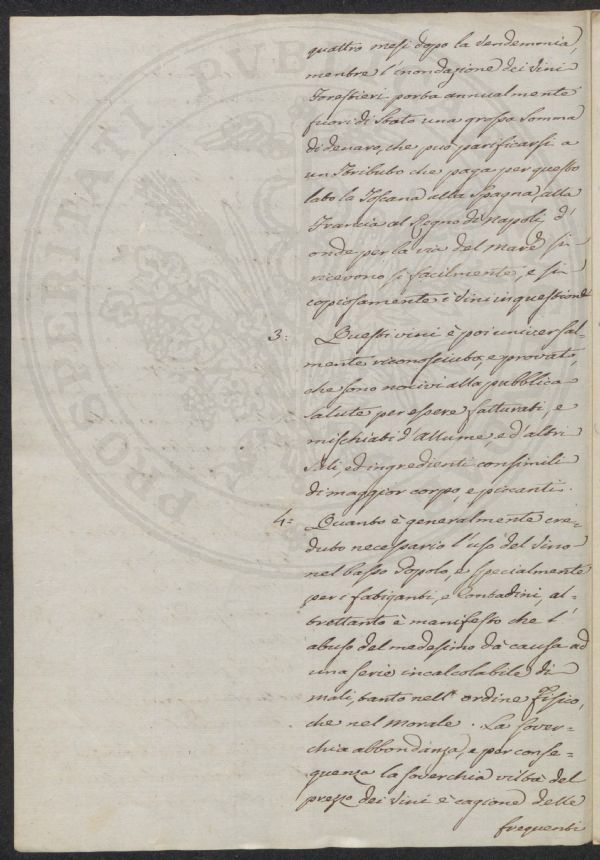 quattro mesi dopo la vendemmia,
mentre l'inondazione dei Vini
Forestieri porta annualmente
fuori di Stato una grossa Somma
di denaro, che può parificarsi a
un Tributo che paga per questo
lato la Toscana alla Spagna, alla
Francia al Regno di Napoli, d'
onde per la via del Mare si
ricevono sì facilmente, e sì
copiosamente i Vini in questione
3: Questi vini è poi universal=
mente riconosciuto, e provato,
che sono nocivi alla pubblica
salute per essere fatturati, e
mischiati d'allume, e d'altri
Sali, ed ingredienti consimili
di maggior corpo, e piccanti.
4= Quanto è generalmente cre=
duto necessario l'uso del Vino
nel basso Popolo, e specialmente
per i fatiganti, e Contadini, al=
trettanto è manifesto che l'
abuso del medesimo dà causa ad
una serie incalcolabile di
mali, tanto nell'ordine Fisico,
che nel Morale. La sover=
chia abbondanza, e per conse=
quenza la soverchia viltà del
prezzo dei Vini è cagione delle
frequenti
PROSPERITATI PVBLICAE